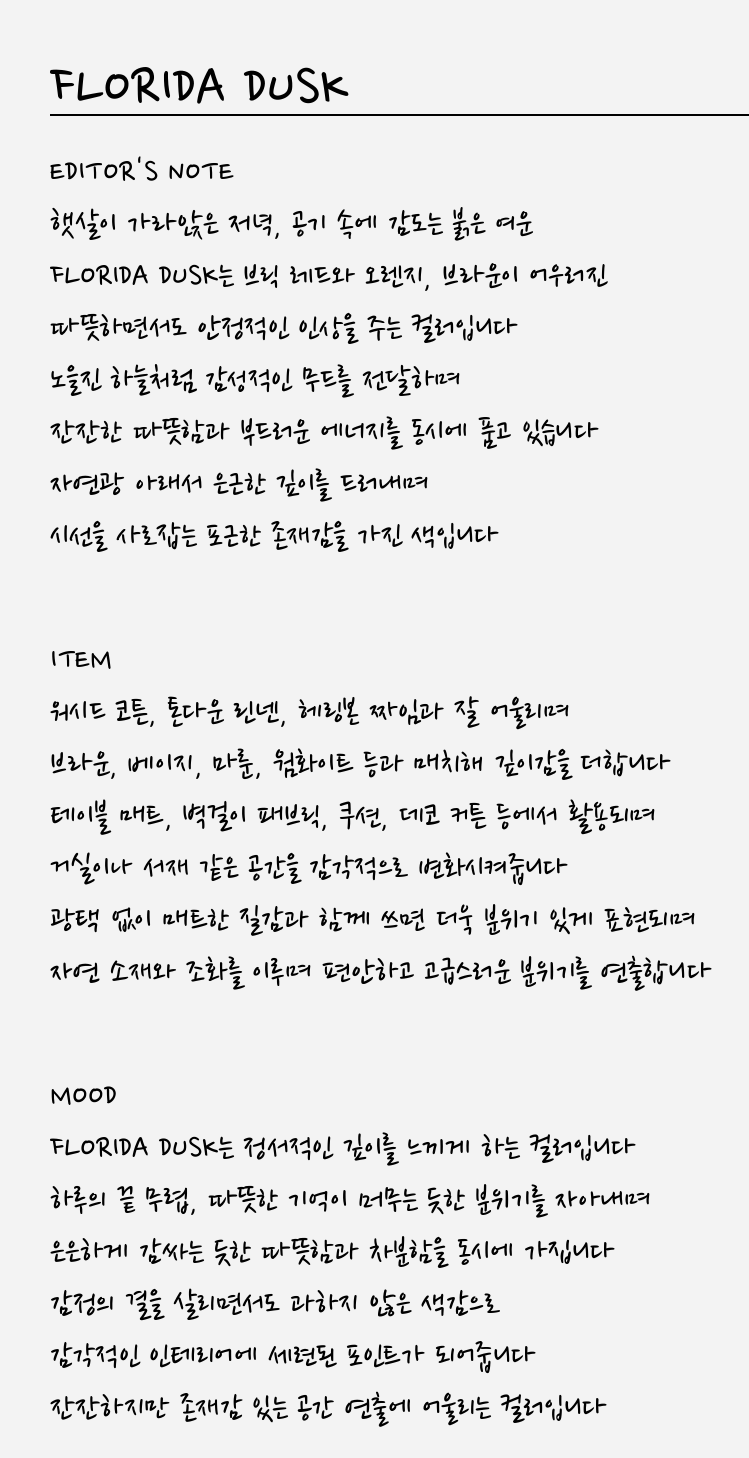 FLORIDA DUSK
EDITOR'S NOTE
햇살이 가라앉은 저녁, 공기 속에 감도는 붉은 여운
FLORIDA DUSK는 브릭 레드와 오렌지, 브라운이 어우러진
따뜻하면서도 안정적인 인상을 주는 컬러입니다
노을진 하늘처럼 감성적인 무드를 전달하며
잔잔한 따뜻함과 부드러운 에너지를 동시에 품고 있습니다
자연광 아래서 은근한 깊이를 드러내며
시선을 사로잡는 포근한 존재감을 가진 색입니다
ITEM
워시드 코튼, 톤다운 린넨, 헤링본 짜임과 잘 어울리며
브라운, 베이지, 마룬, 웜화이트 등과 매치해 깊이감을 더합니다
테이블 매트, 벽걸이 패브릭, 쿠션, 데코 커튼 등에서 활용되며
거실이나 서재 같은 공간을 감각적으로 변화시켜줍니다
광택 없이 매트한 질감과 함께 쓰면 더욱 분위기 있게 표현되며
자연 소재와 조화를 이루며 편안하고 고급스러운 분위기를 연출합니다
MOOD
FLORIDA DUSK는 정서적인 깊이를 느끼게 하는 컬러입니다
하루의 끝 무렵, 따뜻한 기억이 머무는 듯한 분위기를 자아내며
은은하게 감싸는 듯한 따뜻함과 차분함을 동시에 가집니다
감정의 결을 살리면서도 과하지 않은 색감으로
감각적인 인테리어에 세련된 포인트가 되어줍니다
잔잔하지만 존재감 있는 공간 연출에 어울리는 컬러입니다